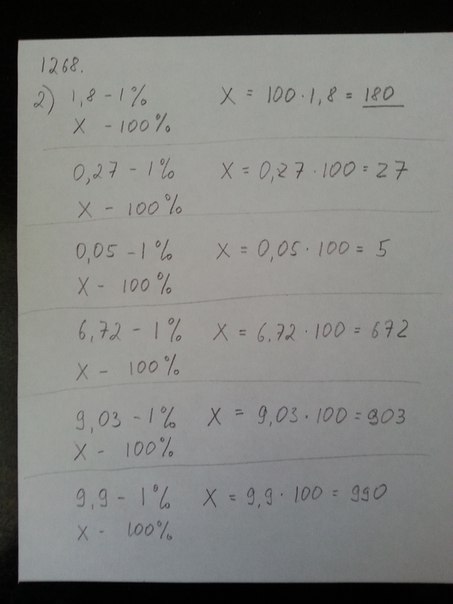 1268.
2) 1,8 - 1% X = 100·1,8 = 180
X - 100%
0,27 - 1% X = 0,27·100 = 27
X - 100%
0,05 - 1% X = 0,05·100 = 5
X - 100%
6,72 - 1% X = 6,72·100 = 672
X - 100%
9,03 - 1% X = 9,03·100 = 903
X - 100%
9,9 - 1% X = 9,9·100 = 990
X - 100%